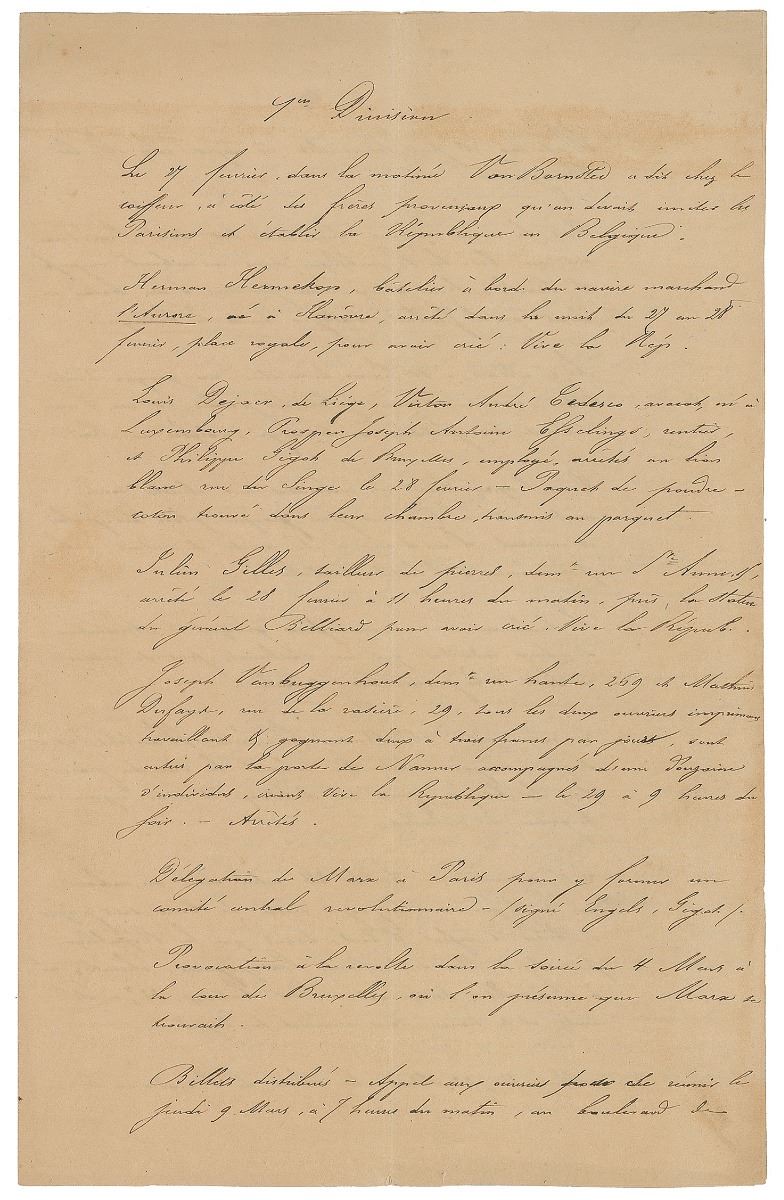 1ère Division
Le 27 février, dans la matinée Von Borndted a dit chez le
coiffeur, à côté des frères provençaux qu'on devait imiter les
Parisiens et établir la République en Belgique.
Herman Hermekop, bâtelier à bord du navire marchand
l'Aurore, né à Hanôvre, arrêté dans la nuit du 27 au 28
février, place royale, pour avoir crié : Vive la Rép.
Louis Dejaer, de Liège, Victor André Tedesco, avocat, né à
Luxembourg, Prosper Joseph Antoine Esselings, rentier,
et Philippe Gigot de Bruxelles, employé, arrêtés au lion
blanc rue du Singe le 28 février – Paquet de poudre-
coton trouvé dans leur chambre, transmis au parquet.
Julien Gilles, tailleur de pierres, demt rue Ste Anne, 15,
arrêté le 28 février à 11 heures du matin, près la statue
du général Belliard pour avoir crié. Vive la Républ.
Joseph Vanbuggenhout, demt rue haute, 269 et Mathieu
Dufays, rue de la rasière, 29, tous les deux ouvriers imprimeurs
travaillant & gagnant deux à trois francs par jour, sont
entrés par la porte de Namur accompagnés d'une douzaine
d'individus, criant Vive la République – le 29 à 9 heures du
soir. – Arrêtés.
Délégation de Marx à Paris pour y former un
comité central revolutionnaire – (signé Engels, Gigot).
Provocation à la revolte dans la soirée du 4 Mars à
la cour de Bruxelles, où l'on présume que Marx se
trouvait.
Billets distribués – Appel aux ouvriers de se réunir le
jeudi 9 Mars, à 7 heures du matin, au boulevard de